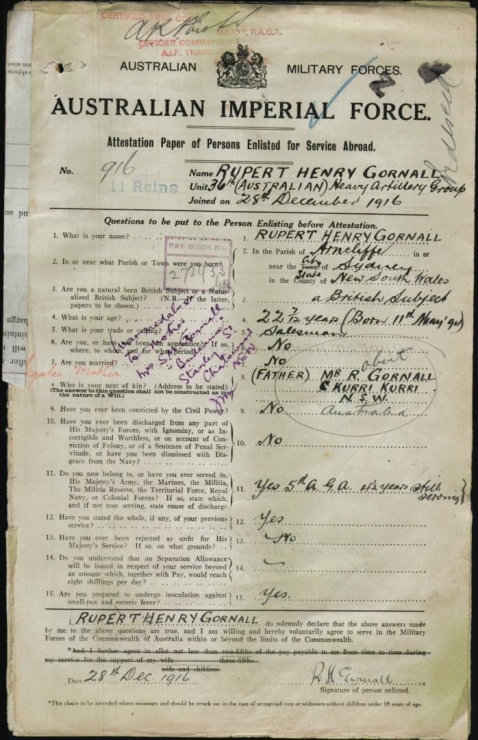 AUSTRALIAN MILITARY FORCES.
AUSTRALIAN IMPERIAL FORCE.
Attestation Paper of Persons Enlisted for Service Abroad.
No. 916
11 Reins
Name RUPERT HENRY GORNALL
Unit 36th (AUSTRALIAN) Heavy Artillery Group
Joined on 28th December 1916
Questions to be put to the Person Enlisting before Attestation.
1. What is your name?
1. RUPERT HENRY GORNALL
2. In or near what Parish or Town were you born?
2. In the Parish of Arncliffe in or
near the City of Sydney
in the County of New South Wales
State
PAY BOOK
3. Are you a natural born British Subject or a Natu-
ralized British Subject? (N.B.— the latter,
papers to be shown.)
3. a British Subject
4. What is your age?
4. 22 7/12 years (Born 11th
5. What is your trade or calling?
5. Salesman
6. Are you, or have you been an Apprentice? If so,
where, to whom, and for what period?
6. No
7. Are you married?
7. No
8. Who is your next of kin? (Address to be stated)
(The answer to this question shall not be construed as in
the nature of a Will.)
8. (FATHER) MR R. GORNALL
KURRI KURRI
N.S.W.
Australia
9. Have you ever been convicted by the Civil Power?
9. No
10. Have you ever been discharged from any part of
His Majesty's Forces, with Ignominy, or as In-
corrigible and Worthless, or on account of Con-
viction of Felony, or of a Sentence of Penal Ser-
vitude, or have you been dismissed with Dis-
grace from the Navy?
10. No
11. Do you now belong to, or have you ever served in,
His Majesty's Army, the Marines, the Militia,
The Militia Reserve, the Territorial Force, Royal
Navy, or Colonial Forces? If so, state which,
and if not now serving, state cause of discharge
11. Yes 5th A.G.A. years still
serving
12. Have you stated the whole, if any, of your previous
service?
12. Yes
13. Have you ever been rejected as unfit for His
Majesty's Service? If so, on what grounds?
13. No
14. Do you understand that no Separation Allowance
will be issued in respect of your service beyond
an amount which, together with Pay, would reach
eight shillings per day?
14.
15. Are you prepared to undergo inoculation against
small-pox and enteric fever?
15. Yes.
I, RUPERT HENRY GORNALL do solemnly declare that the above answers made
by me to the above questions are true, and I am willing and hereby voluntarily agree to serve in the Military
Forces of the Commonwealth of Australia within or beyond the limits of the Commonwealth.
*And I further agree to allot not less than two-fifths of the pay payable to me from time to time during
three-fifths
my service for the support of my wife
wife and children.
Date 28th Dec. 1916
R H Gornall
Signature of person enlisted.
*This clause to be amended where necessary and should be struck out in the case of unmarried men or widowers without children under 18 years of age.